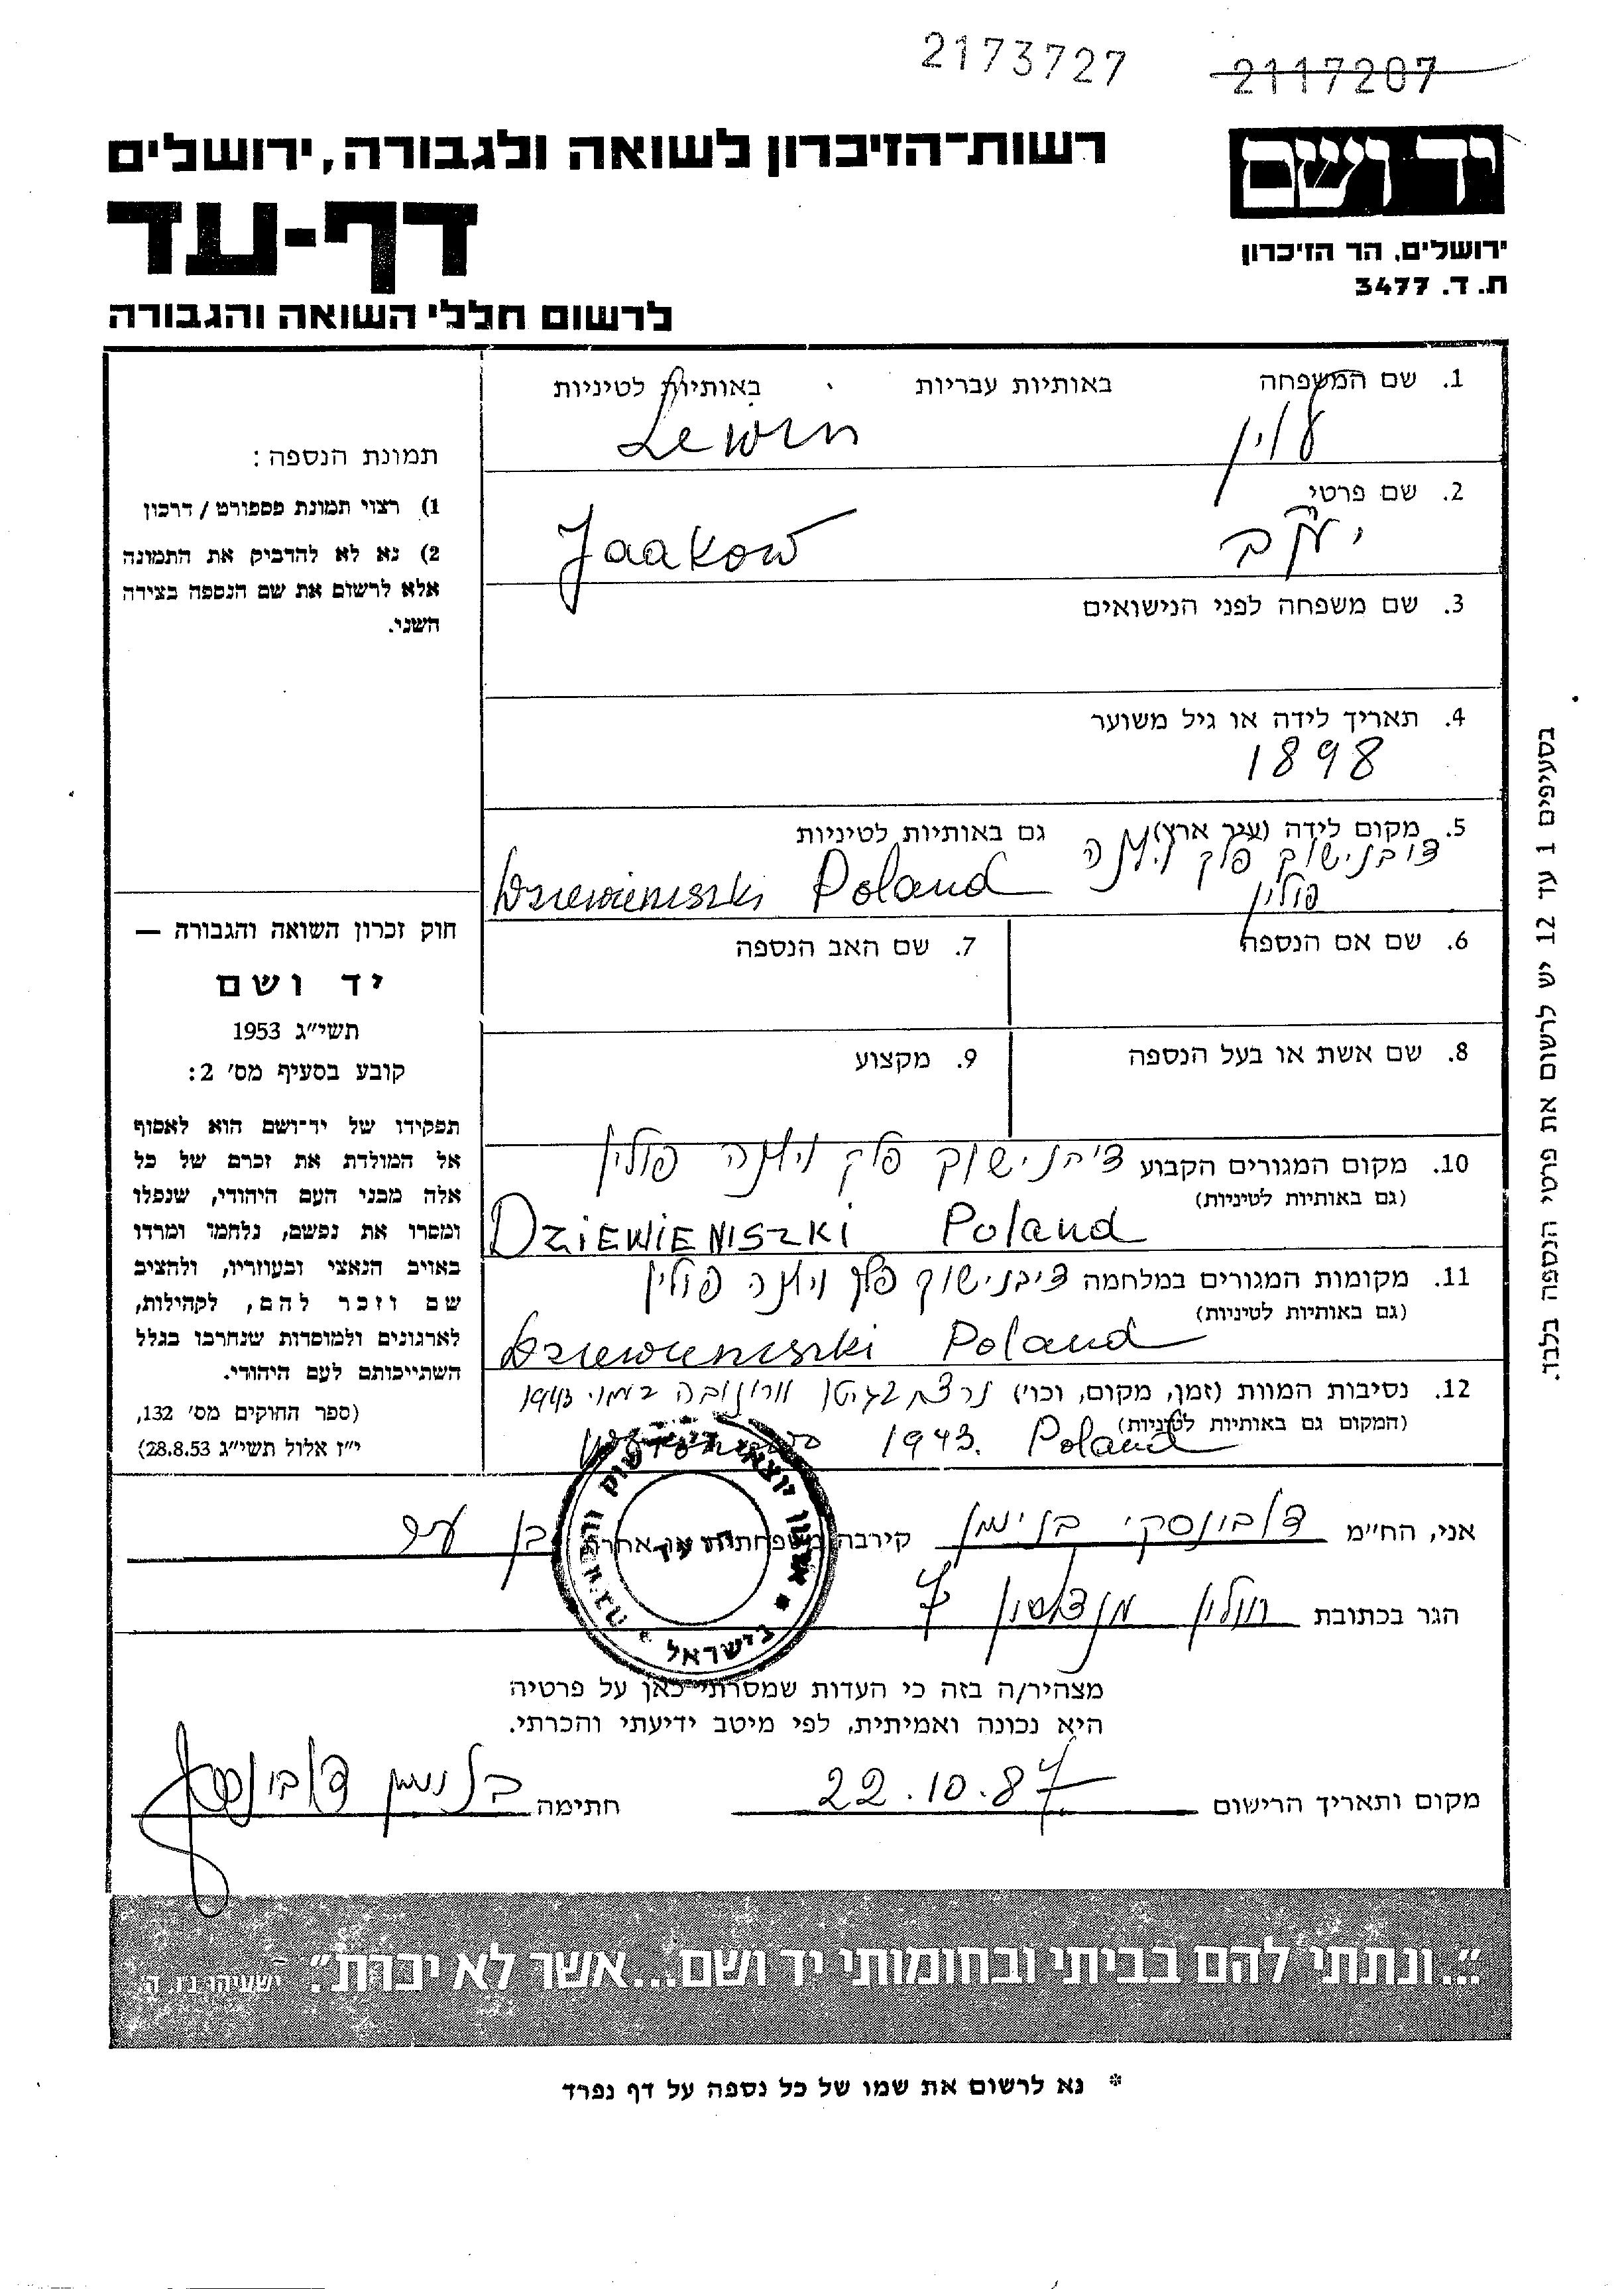 2173727
2117207
יד ושם
ירושלים, הר הזיכרון
ת. ד. 3477
רשות־הזיכרון לשואה ולגבורה, ירושלים
דף-עד
לרשום חללי השואה והגבורה
1. שם המשפחה באותיות עבריות באותיות לטיניות
לוין Lewin
2. שם פרטי
יעקב Jaakow
3. שם משפחה לפני הנישואים
4. תאריך לידה או גיל משוער
1898
5. מקום לידה (עיר ארץ) גם באותיות לטיניות
דיבנישוק פלך וילנה
פולין Dziewieniszki Poland
6. שם אם הנספה
7. שם האב הנספה
8. שם אשת או בעל הנספה
9. מקצוע
10. מקום המגורים הקבוע דיבנישוק פלך וילנה פולין
(גם באותיות לטיניות)
DZIEWIENISZKI Poland
11. מקומות המגורים במלחמה דיבנישוק פלך וילנה פולין
(גם באותיות לטיניות)
Dziewieniszki Poland
12. נסיבות המוות (זמן, מקום, וכו') נרצח בגיטו וורונובה במאי 1943
(המקום גם באותיות לטיניות)
1943. Poland
תמונת הנספה:
1) רצוי תמונת פספורט / דרכון
2) נא לא להדביק את התמונה
אלא לרשום את שם הנספה בצידה
השני.
חוק זכרון השואה והגבורה —
יד ושם
תשי״ג 1953
קובע בסעיף מס' 2:
תפקידו של יד־ושם הוא לאסוף
אל המולדת את זכרם של כל
אלה מבני העם היהודי, שנפלו
ומסרו את נפשם, נלחמו ומרדו
באויב הנאצי ובעוזריו, ולהציב
שם וזכר להם, לקהילות,
לארגונים ולמוסדות שנחרבו בגלל
השתייכותם לעם היהודי.
(ספר החוקים מס' 132,
י״ז אלול תשי״ג 28.8.53)
בסעיפים 1 עד 12 יש לרשום את פרטי הנספה בלבד.
אני, הח״מ דלובונסקי בנימין קירבה משפחתית או אחרת בן עיר
הגר בכתובת חולון מנדלסון 7
ארגון יוצאי
בישראל
מצהיר/ה בזה כי העדות שמסרתי כאן על פרטיה
היא נכונה ואמיתית, לפי מיטב ידיעתי והכרתי.
מקום ותאריך הרישום 22.10.87 חתימה
„...ונתתי להם בביתי ובחומותי יד ושם...אשר לא יכרת״. ישעיהו נו. ה.
* נא לרשום את שמו של כל נספה על דף נפרד